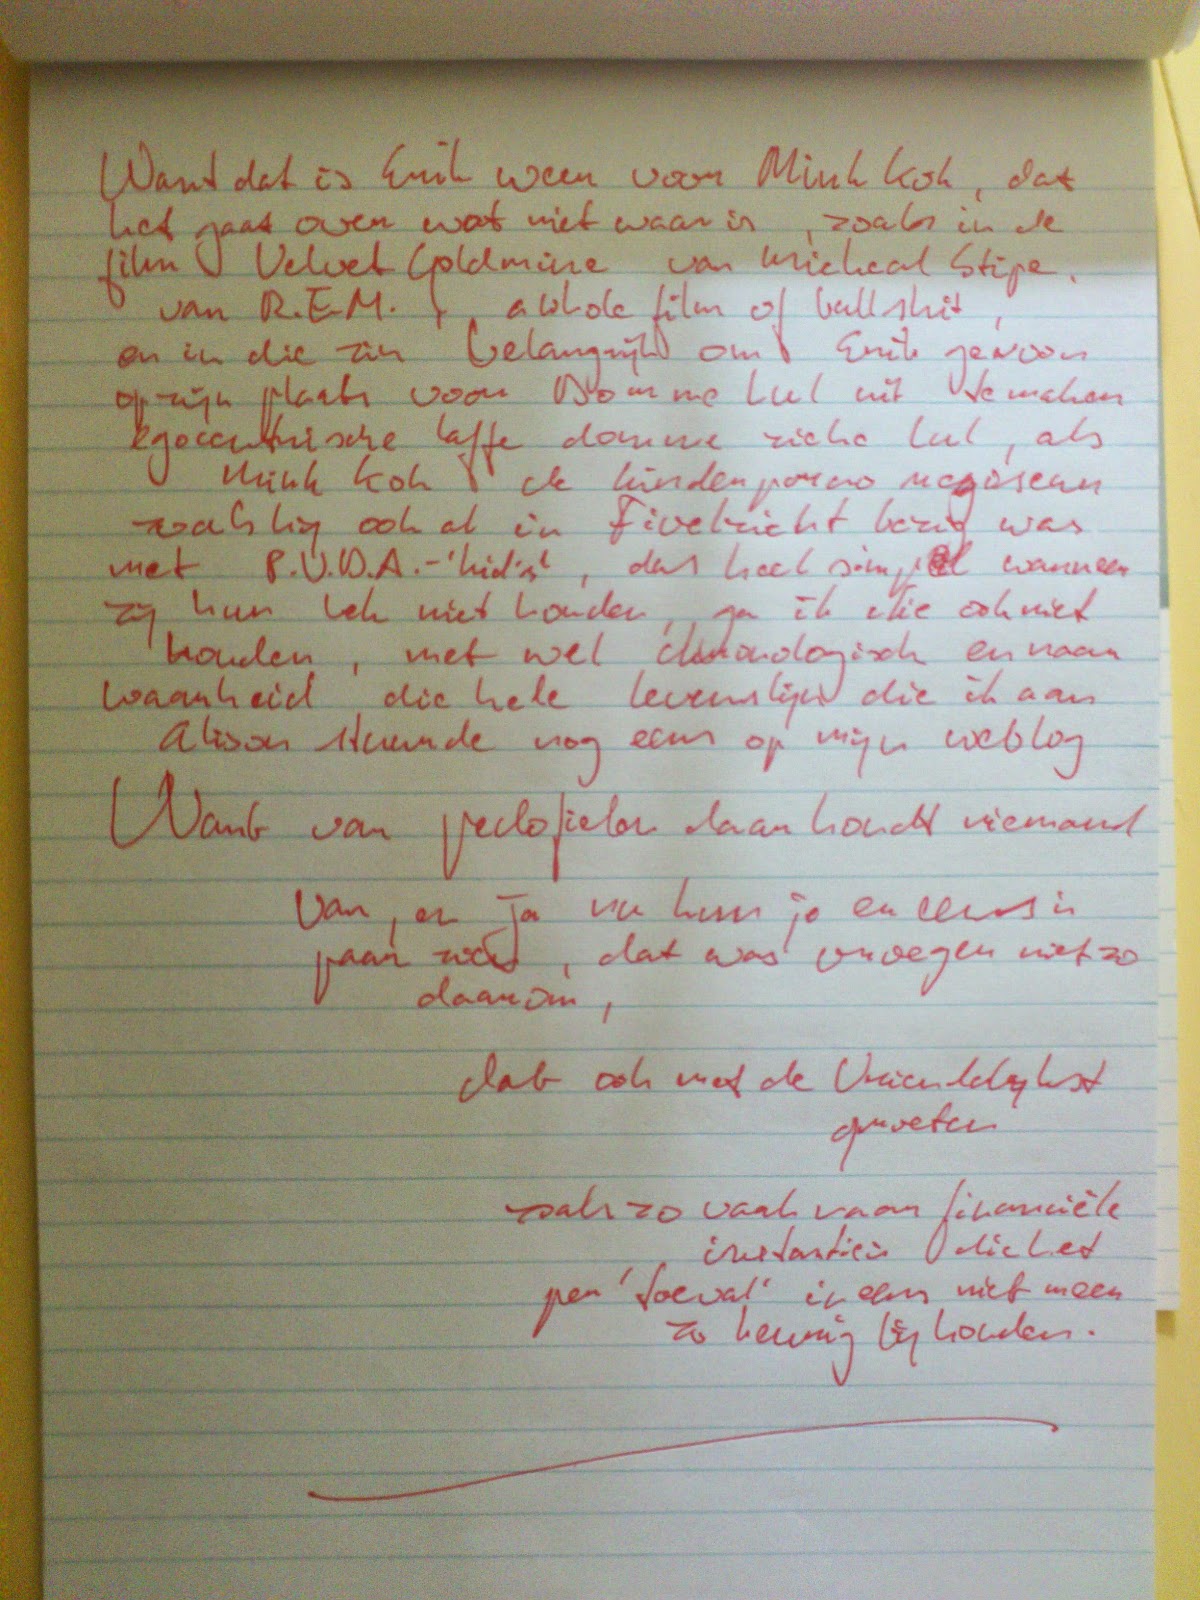 Want dat is Erik weer voor Mink Kok, dat
het gaat over wat niet waar is, zoals in de
film Velvet Goldmine van Micheal Stipe.
van R.E.M., a whole film of bullshit,
en in die zin belangrijk om Erik gewoon
op zijn plaats voor Domme Lul uit te maken
egocentrische laffe domme zieke lul, als
Mink Kok de kinderporno regisseur
zoals hij ook al in Fivelricht bezig was
met P.U.D.A.-'kid's', dus heel simpel wanneer
zij hun bek niet houden, ga ik die ook niet
houden, met wel chronologisch en naar
waarheid die hele levenslijn die ik aan
Alison stuurde nog eens op mijn weblog
Want van pedofielen daar houdt niemand
van, en ja nu kun je en eens in
paar zien, dat was vroeger niet zo
daarom,
dat ook met de Vriendelijkst
groeten
zoals zo vaak naar financiële
instantien die het
per 'toeval' ineens niet meer
zo keurig bij houden.